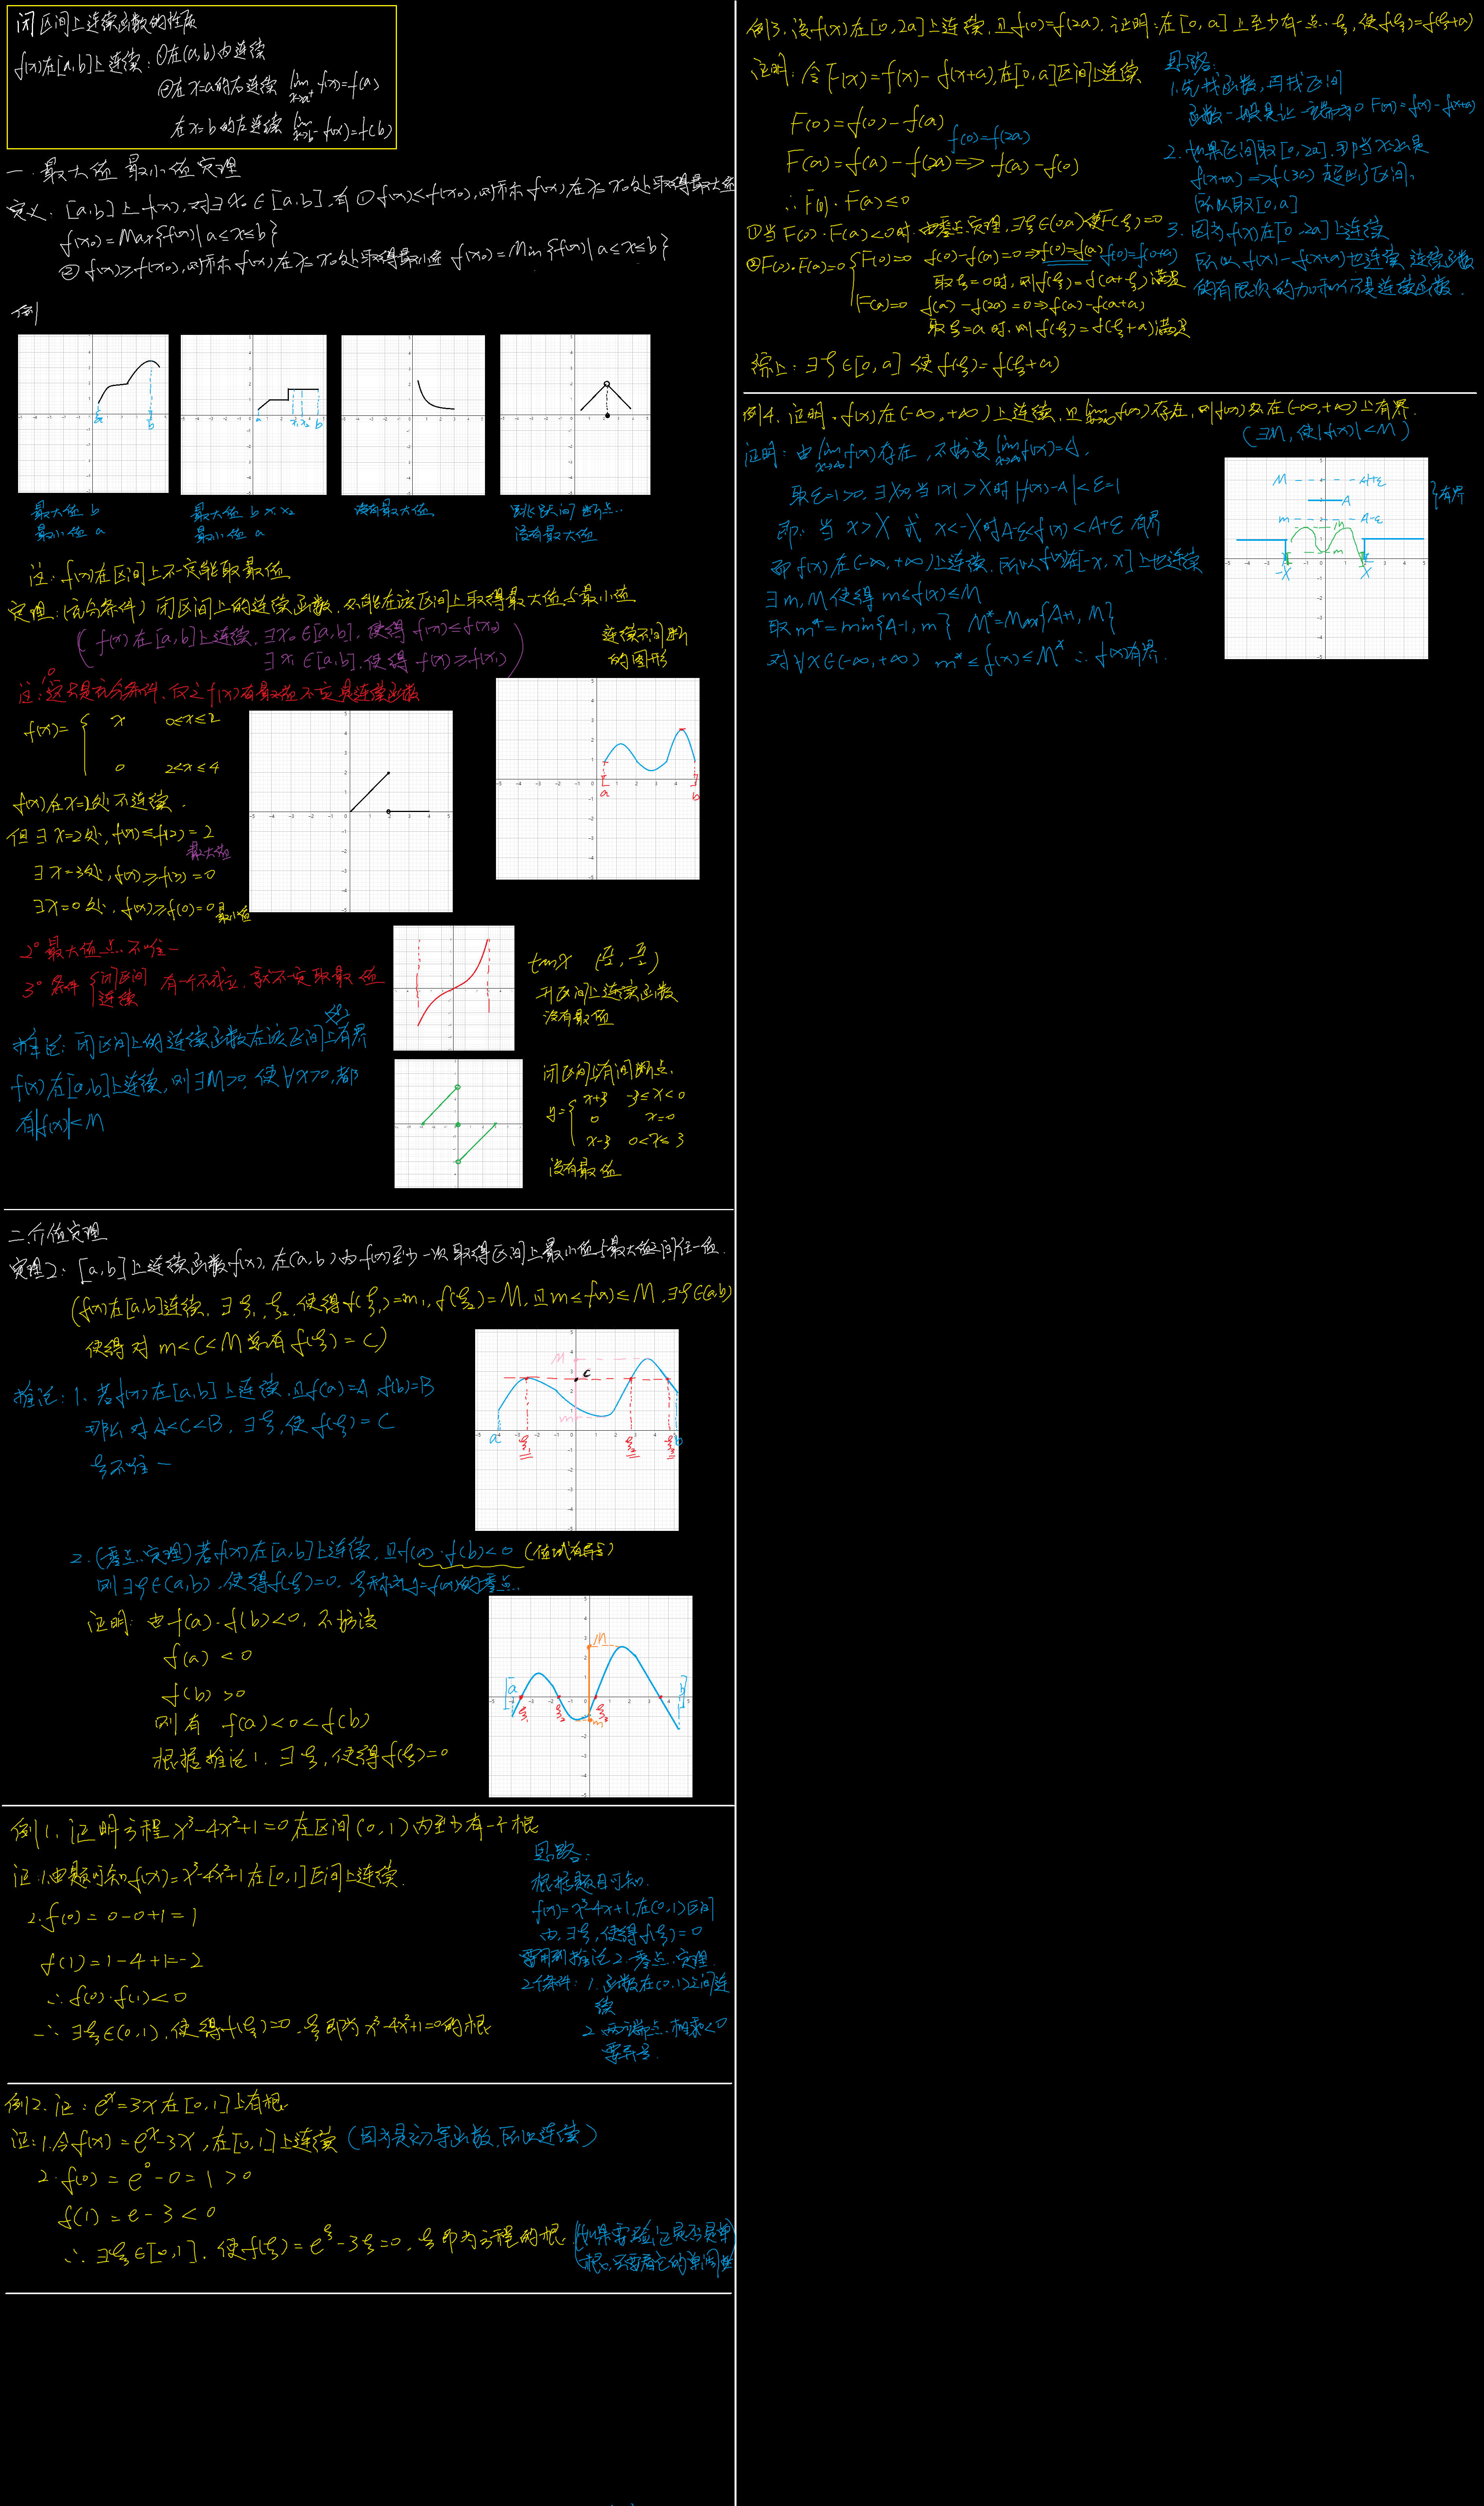 闭区间上连续函数的性质
f(x)在[a,b]上连续：①在(a,b)内连续
②在x=a的右连续 lim x→a⁺ f(x)=f(a)
在x=b的左连续 lim x→b⁻ f(x)=f(b)
一.最大值 最小值定理
定义. [a,b]上f(x),对∃x₀∈[a,b],有①f(x)≤f(x₀),则称f(x)在x=x₀处取得最大值
f(x₀)=Max{f(x)|a≤x≤b}
② f(x)≥f(x₀),则称f(x)在x=x₀处取得最小值 f(x₀)=Min{f(x)|a≤x≤b}
例
a b
a x₁ x₂ b
最大值 b
最小值 a
最大值 b x₁ x₂
最小值 a
没有最大值
跳跃间断点
没有最大值
注：f(x)在区间上不一定能取最值
定理：(充分条件) 闭区间上的连续函数,必能在该区间上取得最大值与最小值
(f(x)在[a,b]上连续,∃x₀∈[a,b],使得 f(x)≤f(x₀)
∃x₁∈[a,b],使得 f(x)≥f(x₁))
连续不间断
的图形
注：1° 这只是充分条件,反之f(x)有最值不一定是连续函数
f(x)={ x 0≤x≤2
0 2<x≤4
f(x)在x=2处不连续.
但∃x=2处,f(x)≤f(2)=2
最大值
∃x=3处,f(x)≥f(3)=0
∃x=0处,f(x)≥f(0)=0 最小值
a b
2° 最大值点不唯一
3° 条件{闭区间 连续 有一个不成立,就不一定取最值
tanx (-π/2, π/2)
开区间上连续函数
没有最值
推论：闭区间上的连续函数在该区间上有界
f(x)在[a,b]上连续,则∃M>0,使∀x>0,都
有|f(x)|<M
闭区间上有间断点
y={ x+3 -3≤x<0
0 x=0
x-3 0<x≤3
没有最值
二.介值定理
定理2：[a,b]上连续函数f(x),在(a,b)内f(x)至少一次取得区间上最小值与最大值之间任一值.
(f(x)在[a,b]连续,∃ξ₁,ξ₂,使得f(ξ₁)=m,f(ξ₂)=M,且m≤f(x)≤M,∃ξ∈(a,b)
使得对 m<C<M 总有 f(ξ)=C)
M C m a ξ₁ ξ₂ ξ₃ b
推论：1.若f(x)在[a,b]上连续,且f(a)=A f(b)=B
那么对A<C<B,∃ξ,使f(ξ)=C
ξ不唯一
2.(零点定理)若f(x)在[a,b]上连续,且f(a)·f(b)<0 (值域有异号)
则∃ξ∈(a,b),使得f(ξ)=0,ξ称为y=f(x)的零点
证明: 由f(a)·f(b)<0,不妨设
f(a)<0
f(b)>0
则有 f(a)<0<f(b)
根据推论1,∃ξ,使得f(ξ)=0
M a ξ₁ ξ₂ ξ₃ m b
例1.证明方程x³-4x²+1=0在区间(0,1)内至少有一个根
证:1.由题可知f(x)=x³-4x²+1在[0,1]区间上连续.
2.f(0)=0-0+1=1
f(1)=1-4+1=-2
∴f(0)·f(1)<0
∴∃ξ∈(0,1),使得f(ξ)=0,ξ即为x³-4x²+1=0的根
思路：
根据题目可知
f(x)=x³-4x+1,在(0,1)区间
内,∃ξ,使得f(ξ)=0
要用到推论2.零点定理
2个条件：1.函数在(0,1)区间连
续
2.两端点相乘<0
要异号
例2.证：eˣ=3x在[0,1]上有根
证:1.令f(x)=eˣ-3x,在[0,1]上连续(因为是初等函数,所以连续)
2.f(0)=e⁰-0=1>0
f(1)=e-3<0
∴∃ξ∈[0,1],使f(ξ)=e^ξ-3ξ=0,ξ即为方程的根.(如果要验证是不是单
根,只要看它的单调性)
例3.设f(x)在[0,2a]上连续,且f(0)=f(2a),证明:在[0,a]上至少有一点ξ,使f(ξ)=f(ξ+a)
证明: 令F(x)=f(x)-f(x+a),在[0,a]区间上连续
F(0)=f(0)-f(a)
f(0)=f(2a)
F(a)=f(a)-f(2a)=>f(a)-f(0)
∴F(0)·F(a)≤0
①当F(0)·F(a)<0时,由零点定理,∃ξ∈(0,a)使F(ξ)=0
②F(0)·F(a)=0{F(0)=0 f(0)-f(a)=0=>f(0)=f(a) f(0)=f(0+a)
取ξ=0时,则f(ξ)=f(a+ξ)满足
F(a)=0 f(a)-f(2a)=0=>f(a)-f(a+a)
取ξ=a时,则f(ξ)=f(ξ+a)满足
综上：∃ξ∈[0,a] 使f(ξ)=f(ξ+a)
思路:
1.先找函数,再找区间
函数一般是让一端为0 F(x)=f(x)-f(x+a)
2.如果区间取[0,2a],那当x=2a是
f(x+a)=>f(3a) 超出了区间,
所以取[0,a]
3.因为f(x)在[0,2a]上连续
所以f(x)-f(x+a)也连续 连续函数
的有限次的加和仍是连续函数.
例4.证明,f(x)在(-∞,+∞)上连续,且lim x→∞ f(x)存在,则f(x)必在(-∞,+∞)上有界.
(∃M,使|f(x)|<M)
证明：由lim x→∞ f(x)存在,不妨设lim x→∞ f(x)=A,
取ε=1>0,∃X>0,当|x|>X时|f(x)-A|<ε=1
即：当x>X 或 x<-X时A-ε<f(x)<A+ε 有界
而f(x)在(-∞,+∞)上连续,所以f(x)在[-X,X]上也连续
∃m,M使得m≤f(x)≤M
取m*=min{A-1,m} M*=Max{A+1,M}
对∀x∈(-∞,+∞) m*≤f(x)≤M* ∴f(x)有界.
M A+ε
A
m A-ε
M
m
-X X
}有界